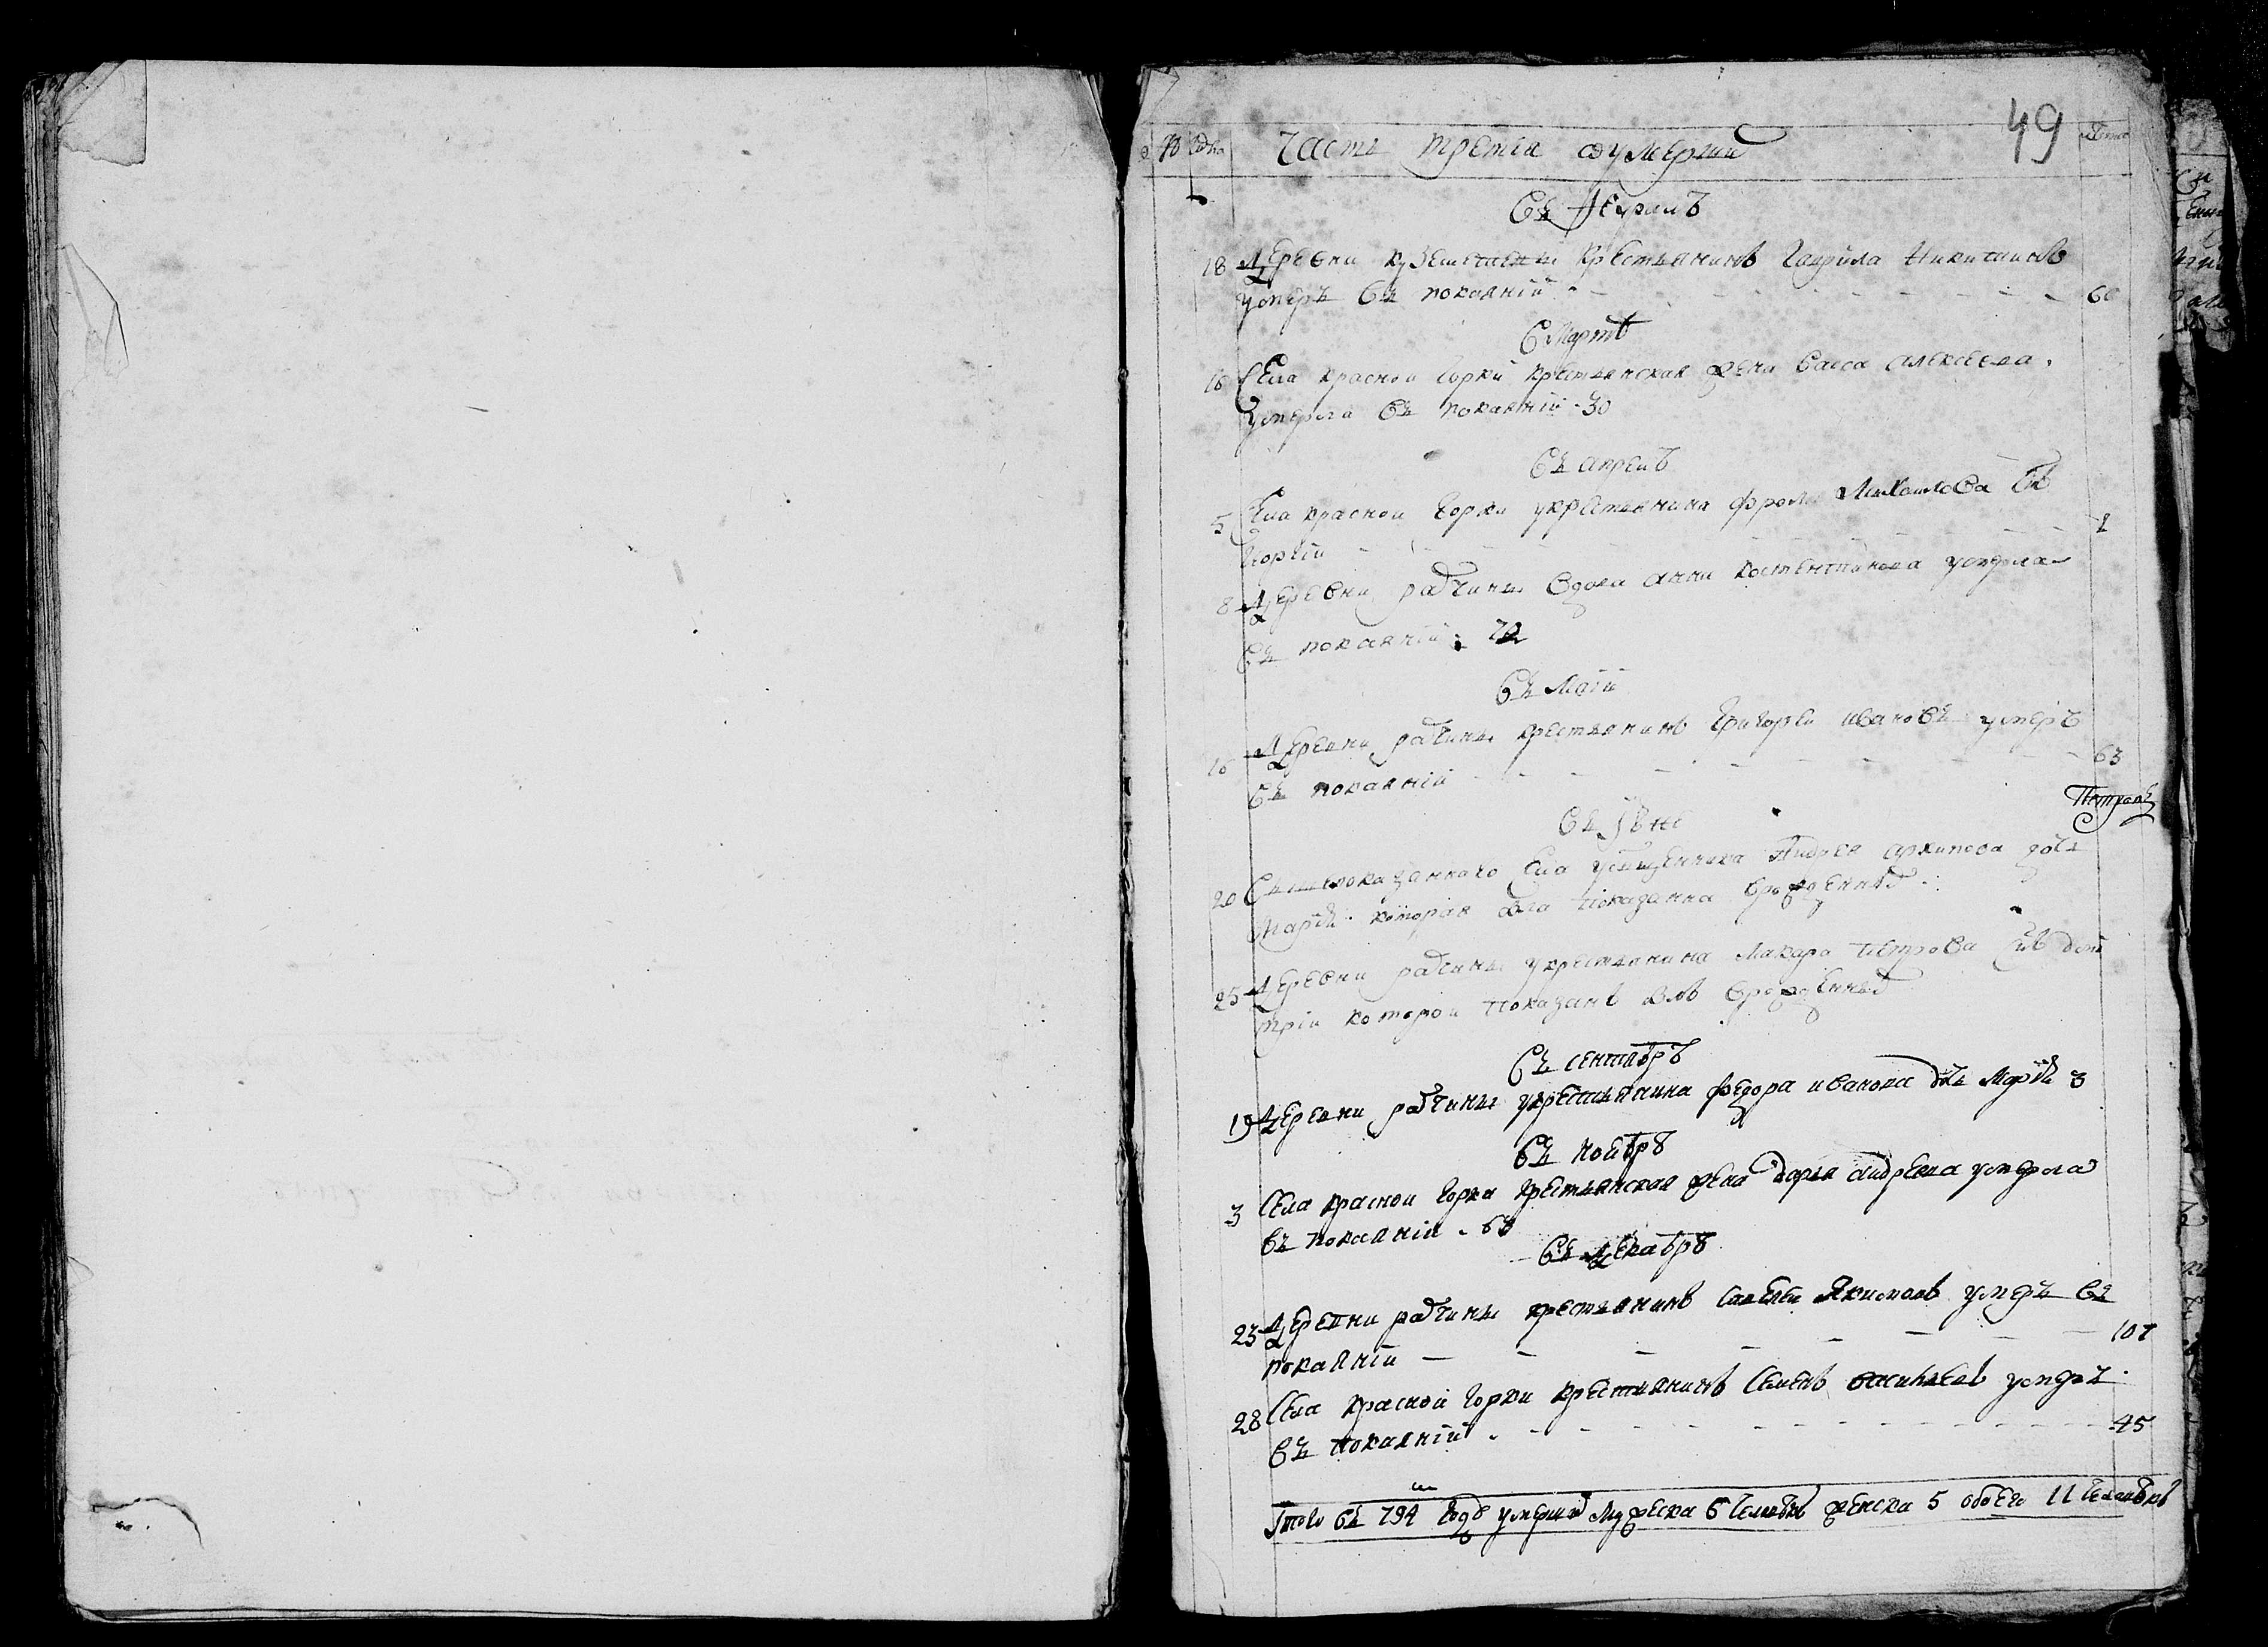 49
Часть третiя оумерших
Въ Феврале
18 Деревни крестьянинъ Гаврила Никитинъ
умеръ въ покаянiи 60
В Марте
16 Села Красной Горки крестьянская жена Васса Алексеева
умерла въ покаянiи 30
Въ апреле
5 Села Красной Горки у крестьянина Фрола Михаилова снъ
1
8 Деревни радчины вдова Анна Костентинова умерла
въ покаянiи 72
Въ Маiи
16 Деревни радчины крестьянинъ Григорей Ивановъ умеръ
въ покаянiи 63
Въ Iюне
20 Вышепоказаннаго села у священника Андрея Архипова дочь
Марiя которая показанна врожденныхъ
25 Деревни радчины у крестьянина Макара Петрова снъ Дми
трiи которой показанъ врожденныхъ
Въ сентябре
19 Деревни радчины у крестьянина Федора Иванова дочь Марiя 3
Въ ноябре
3 Села Красной Горки крестьянская жена Дарья Андреева умерла
въ покаянiи
Въ Декабре
23 Деревни радчины крестьянинъ Савелей Якимовъ умеръ въ
покаянiи 107
28 Села Красной Горки крестьянинъ Семенъ умеръ
въ покаянiи 45
Iтого въ 794 м годе умершихъ мужеска 6 человекъ женска 5 обоего 11 человекъ